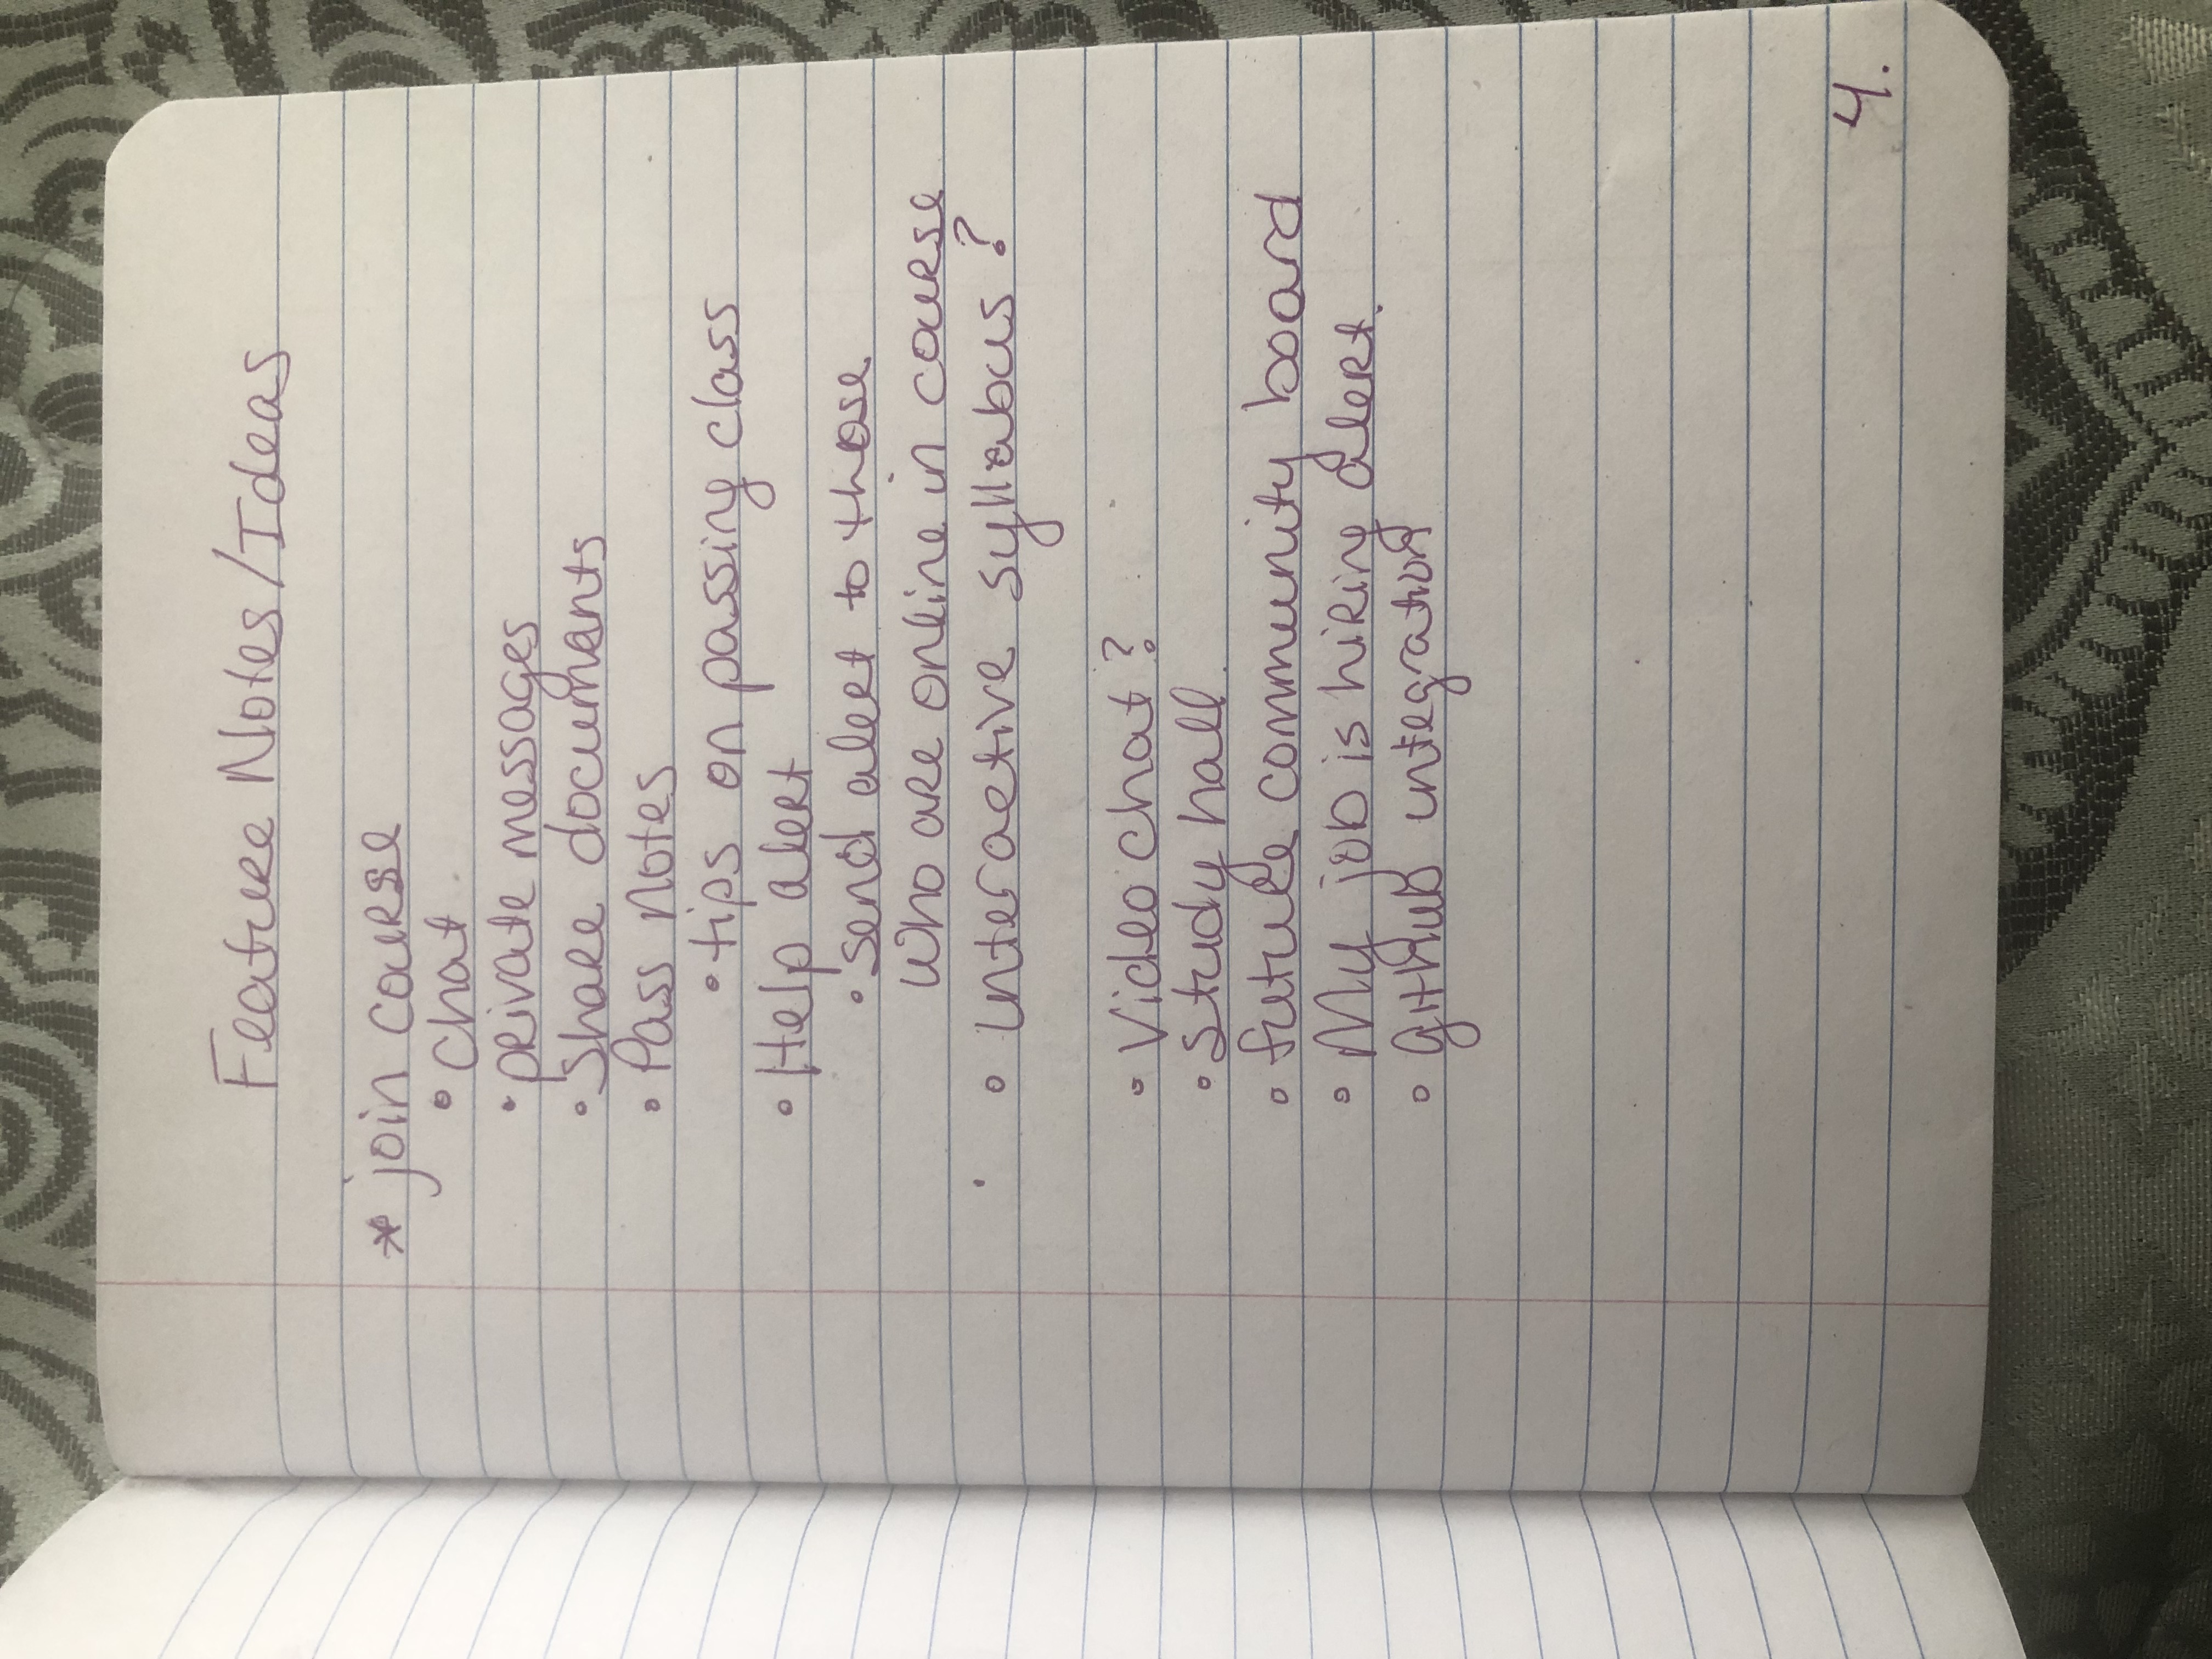 Feature Notes/Ideas
* join course
• chat
• private messages
• Share documents
• Pass notes
• tips on passing class
• Help alert
• send alert to those
who are online in course
• interactive syllabus ?
• Video chat ?
• study hall.
• future community board
• My job is hiring alert.
• github integration
4.